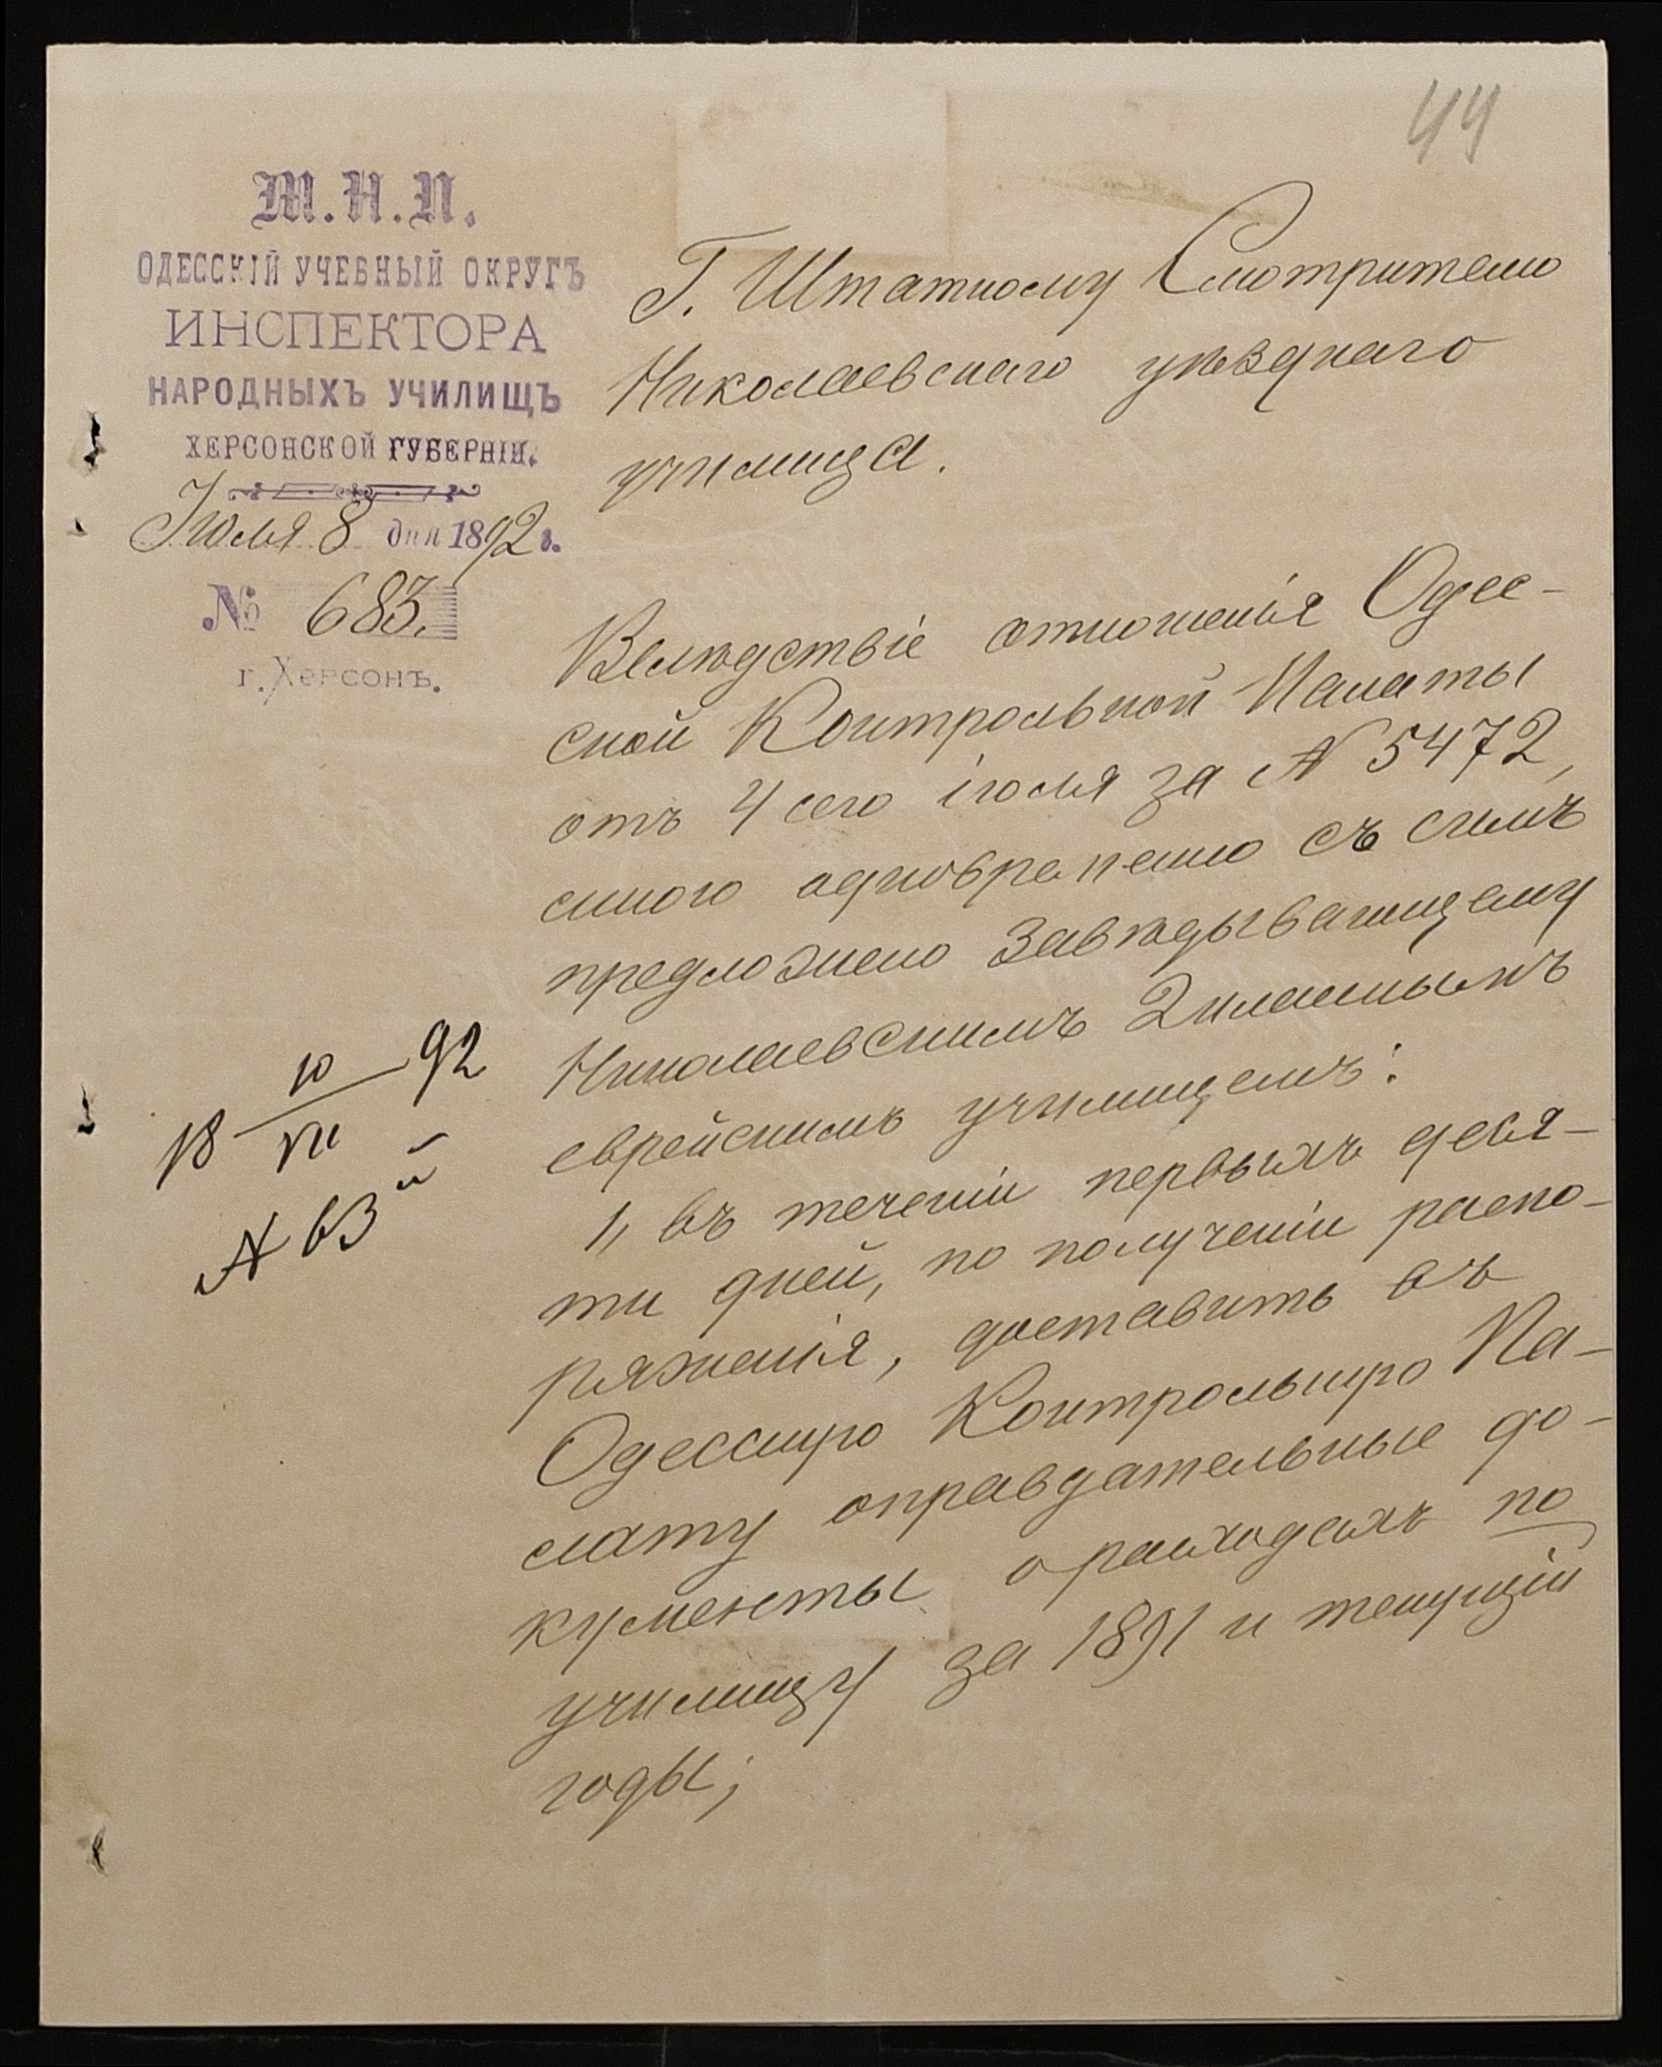 44
М.Н.П.
ОДЕССКІЙ УЧЕБНЫЙ ОКРУГЪ
ИНСПЕКТОРА
НАРОДНЫХЪ УЧИЛИЩЪ
ХЕРСОНСКОЙ ГУБЕРНІИ.
Іюля 8 дня 1892 г.
№ 683.
г. Херсонъ.
Г. Штатному Смотрителю
Николаевскаго уѣзднаго
училища.
Вслѣдствіе отношенія Одес-
ской Контрольной Палаты
отъ 4 сего іюля за № 5472,
мною одновременно съ симъ
предложено Завѣдывающему
Николаевскимъ 2 класснымъ
еврейскимъ училищемъ:
1, въ теченіи первыхъ девя-
ти дней, по полученіи распо-
ряженія, доставить въ
Одесскую Контрольную Па-
лату оправдательные до-
кументы о расходахъ по
училищу за 1891 и текущій
годы;
18 10/VII 92
№ 63й